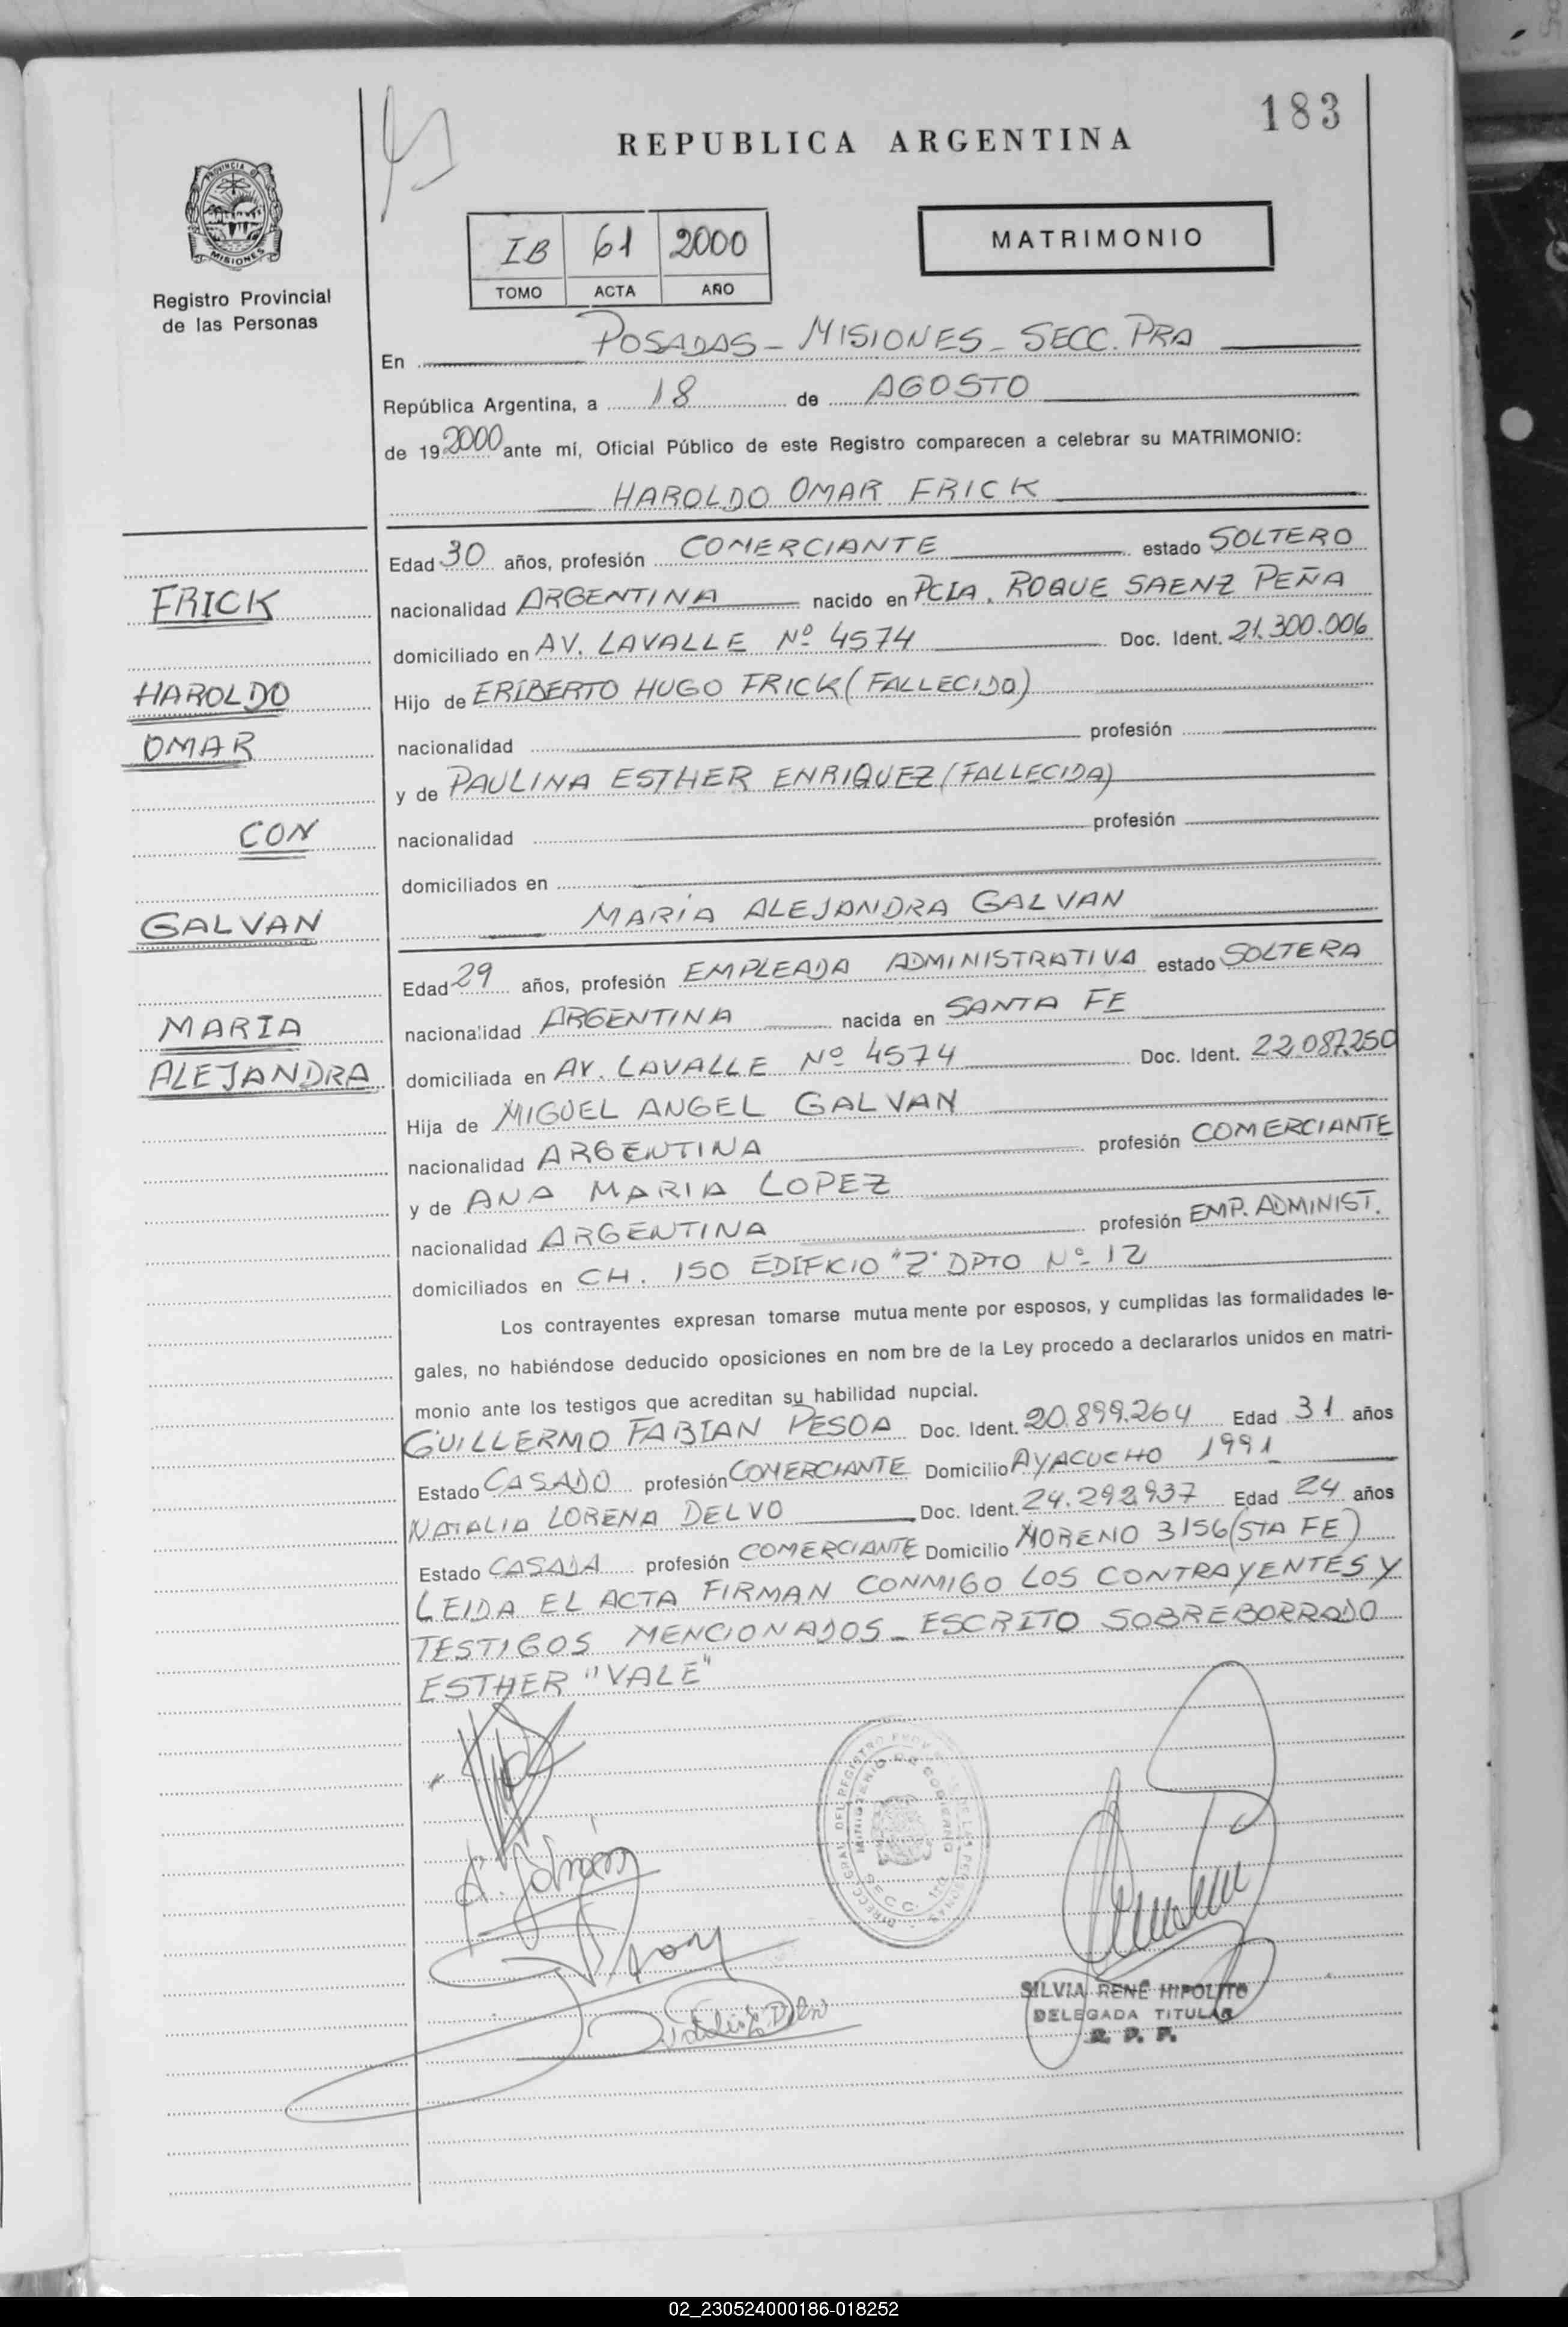 183
REPUBLICA ARGENTINA
PROVINCIA DE
MISIONES
Registro Provincial
de las Personas
IB 61 2000
TOMO ACTA AÑO
MATRIMONIO
En POSADAS - MISIONES - SECC. PRA
República Argentina, a 18 de AGOSTO
de 19 2000 ante mí, Oficial Público de este Registro comparecen a celebrar su MATRIMONIO:
HAROLDO OMAR FRICK
Edad 30 años, profesión COMERCIANTE estado SOLTERO
FRICK
nacionalidad ARGENTINA nacido en PCIA. ROQUE SAENZ PEÑA
domiciliado en AV. LAVALLE Nº 4574 Doc. Ident. 21.300.006
HAROLDO
Hijo de ERIBERTO HUGO FRICK (FALLECIDO)
OMAR
nacionalidad profesión
y de PAULINA ESTHER ENRIQUEZ (FALLECIDA)
CON
nacionalidad profesión
domiciliados en
GALVAN
MARIA ALEJANDRA GALVAN
Edad 29 años, profesión EMPLEADA ADMINISTRATIVA estado SOLTERA
MARIA
nacionalidad ARGENTINA nacida en SANTA FE
ALEJANDRA
domiciliada en AV. LAVALLE Nº 4574 Doc. Ident. 22.087.250
Hija de MIGUEL ANGEL GALVAN
nacionalidad ARGENTINA profesión COMERCIANTE
y de ANA MARIA LOPEZ
nacionalidad ARGENTINA profesión EMP. ADMINIST.
domiciliados en CH. 150 EDIFICIO "Z" DPTO Nº 12
Los contrayentes expresan tomarse mutua mente por esposos, y cumplidas las formalidades le-
gales, no habiéndose deducido oposiciones en nom bre de la Ley procedo a declararlos unidos en matri-
monio ante los testigos que acreditan su habilidad nupcial.
GUILLERMO FABIAN PESOA Doc. Ident. 20.899.264 Edad 31 años
Estado CASADO profesión COMERCIANTE Domicilio AYACUCHO 1991
NATALIA LORENA DELVO Doc. Ident. 24.292.937 Edad 24 años
Estado CASADA profesión COMERCIANTE Domicilio MORENO 3156 (STA FE)
LEIDA EL ACTA FIRMAN CONMIGO LOS CONTRAYENTES Y
TESTIGOS MENCIONADOS - ESCRITO SOBREBORRADO
ESTHER "VALE"
MINISTERIO DE GOBIERNO
SILVIA RENÉ HIPOLITO
DELEGADA TITULAR
R. P. P.
02_230524000186-018252